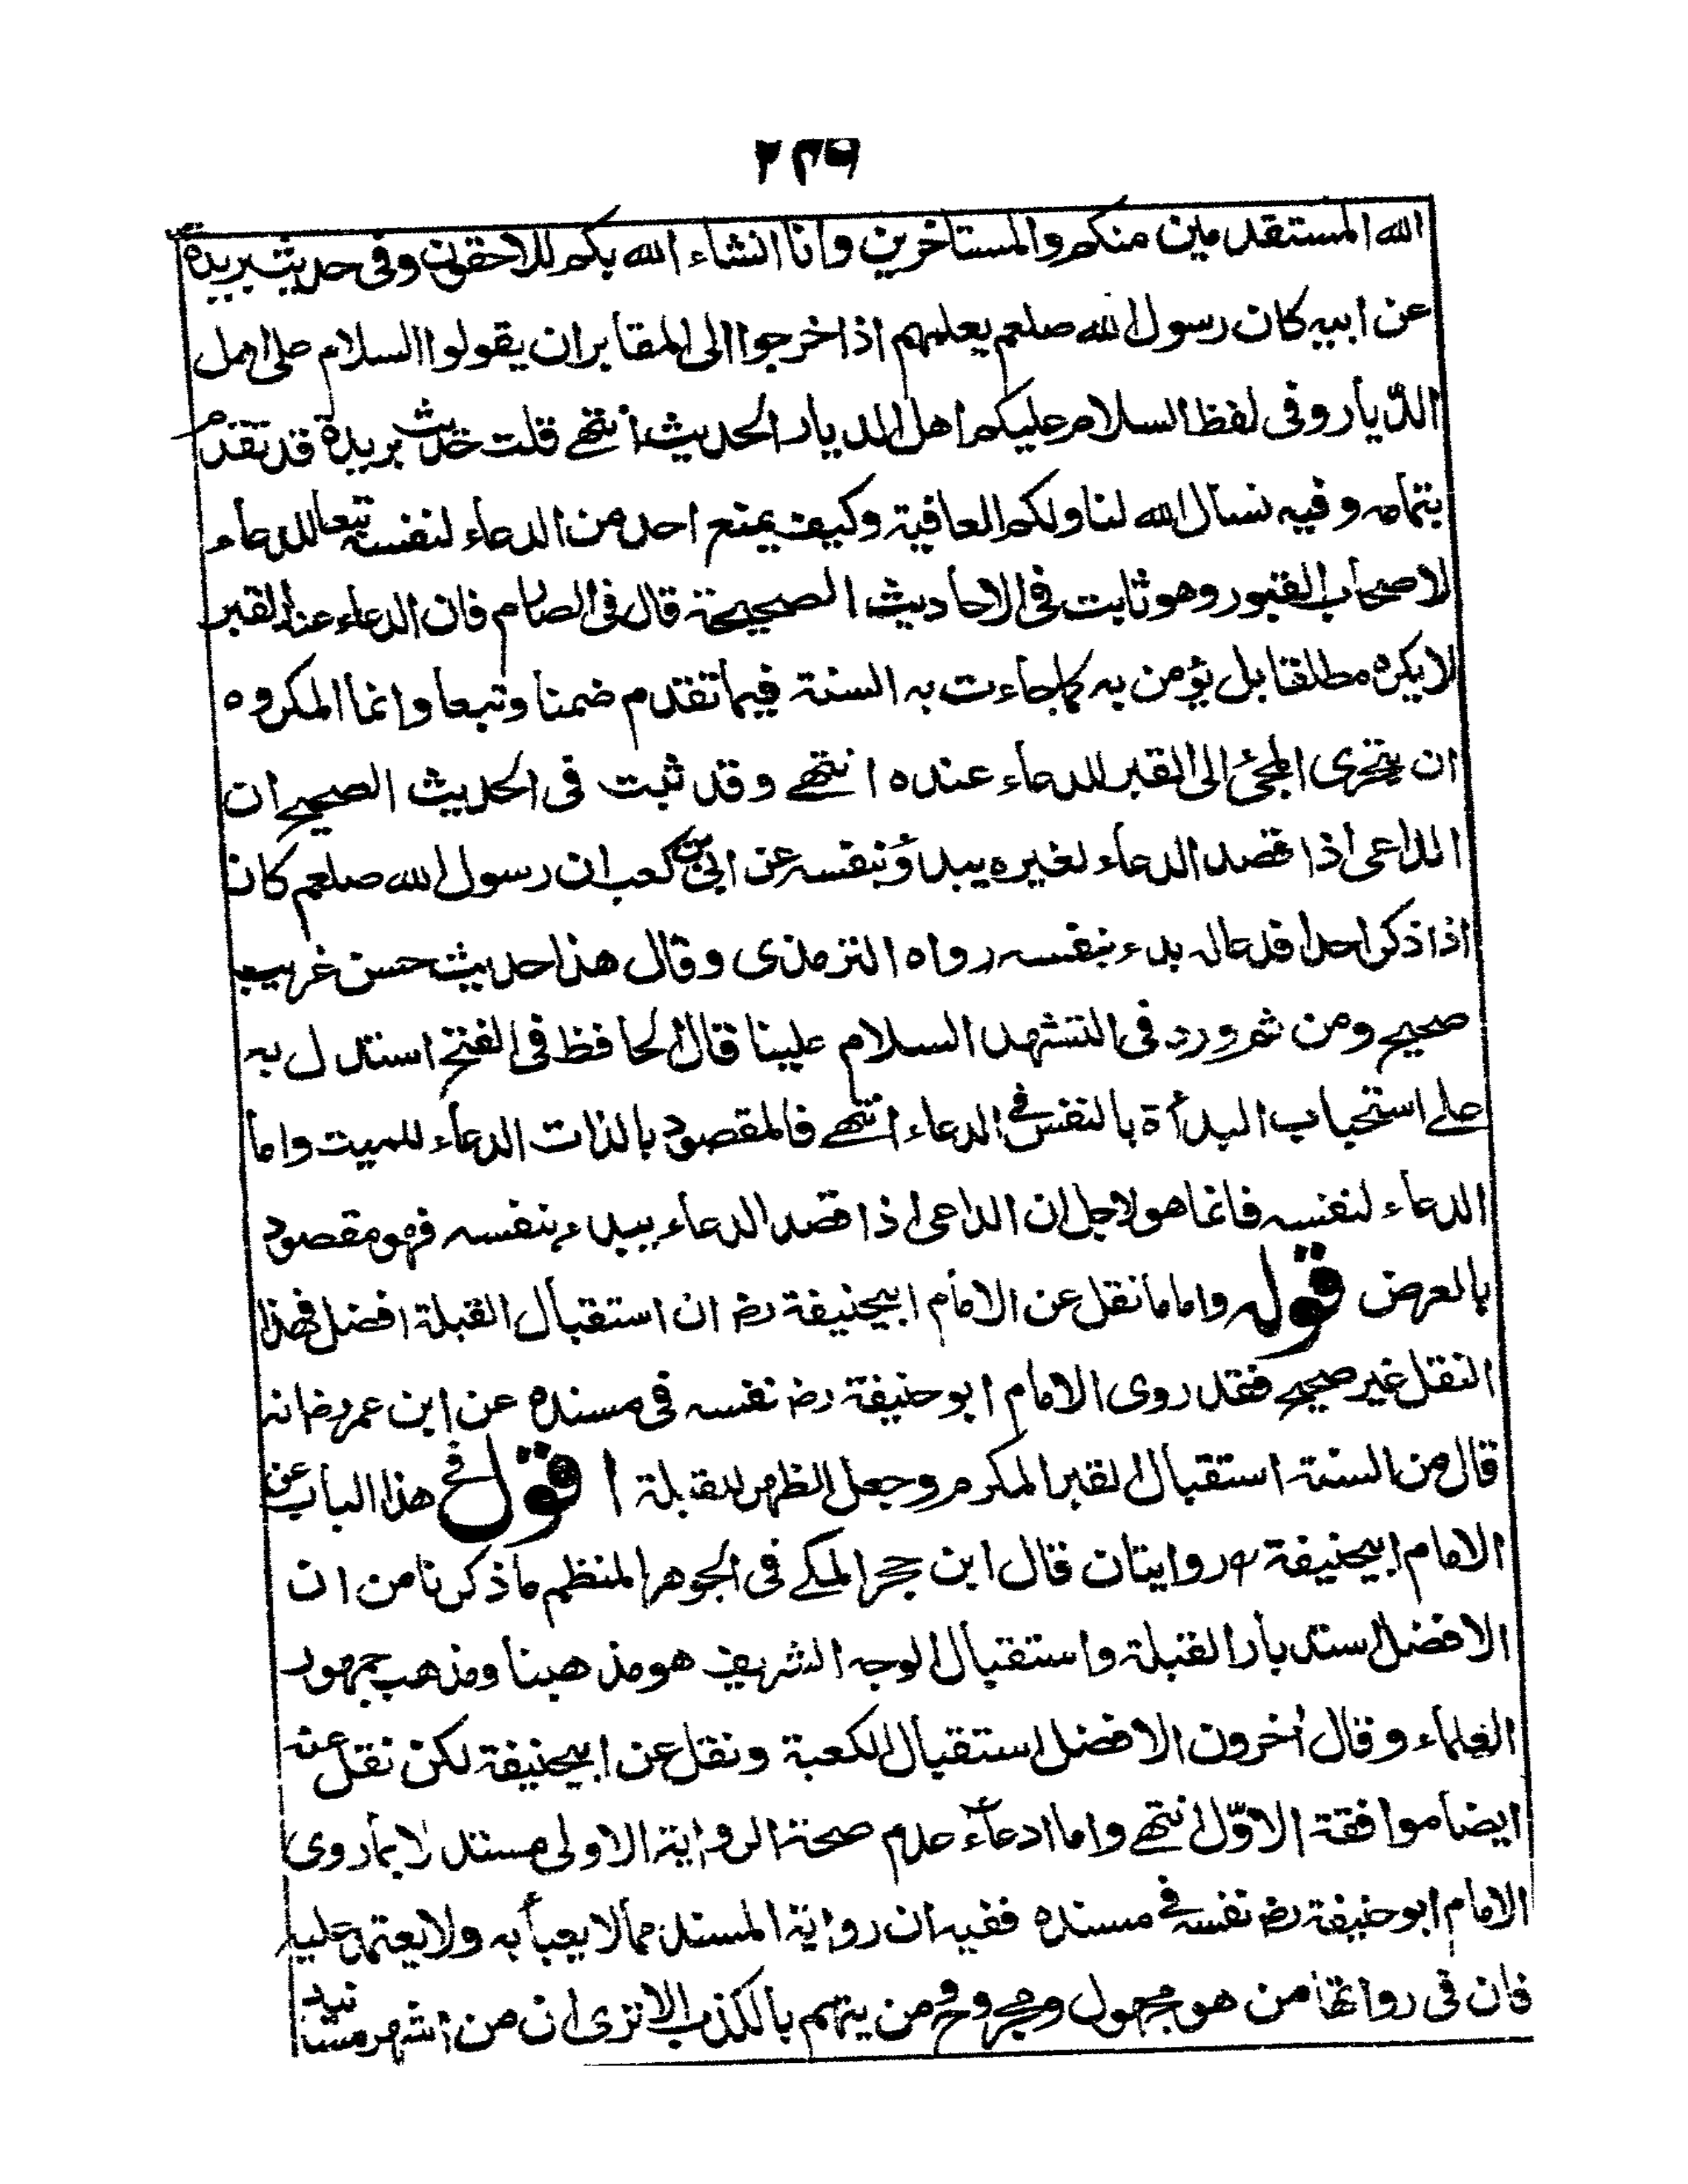 ٢٣٩
الله المستقدمين منكم والمستاخرين وانا انشاء الله بكم للاحقون وفى حديث بريدة
عن ابيه كان رسول الله صلعم يعلمهم اذا خرجوا الى المقابر ان يقولوا السلام على اهل
الديار وفى لفظ السلام عليكم اهل الديار الحديث انتهى قلت حديث بريدة قد تقدم
بتمامه وفيه نسال الله لنا ولكم العافية وكيف يمنع احد من الدعاء لنفسه تبعا للدعاء
لاصحاب القبور وهو ثابت فى الاحاديث الصحيحة قال فى الصارم فان الدعاء عند القبر
لا يكره مطلقا بل يؤمن به كما جاءت به السنة فيما تقدم ضمنا وتبعا وانما المكروه
ان يتحرى المجئ الى القبر للدعاء عنده انتهى وقد ثبت فى الحديث الصحيح ان
الداعى اذا قصد الدعاء لغيره يبدأ بنفسه عن ابى بن كعب ان رسول الله صلعم كان
اذا ذكر احدا فدعا له بدء بنفسه رواه الترمذى وقال هذا حديث حسن غريب
صحيح ومن ثم ورد فى التشهد السلام علينا قال الحافظ فى الفتح استدل به
على استحباب البدأة بالنفس فى الدعاء انتهى فالمقصود بالذات الدعاء للميت واما
الدعاء لنفسه فانما هو لاجل ان الداعى اذا قصد الدعاء يبدء بنفسه فهو مقصود
بالعرض قوله واما ما نقل عن الامام ابيحنيفة رض ان استقبال القبلة افضل فهذا
النقل غير صحيح فقد روى الامام ابو حنيفة رض نفسه فى مسنده عن ابن عمر رض انه
قال من السنة استقبال القبر المكرم وجعل الظهر للقبلة اقول فى هذا الباب عن
الامام ابيحنيفة رح روايتان قال ابن حجر المكى فى الجوهر المنظم ما ذكرنا من ان
الافضل استدبار القبلة واستقبال الوجه الشريف هو مذهبنا ومذهب جمهور
العلماء وقال أخرون الافضل استقبال الكعبة ونقل عن ابيحنيفة لكن نقل عنه
ايضا موافقة الاوّل انتهى واما ادعاء عدم صحة الرواية الاولى مستدلا بما روى
الامام ابو حنيفة رض نفسه فى مسنده ففيه ان رواية المسند مما لا يعبأ به ولا يعتمد عليه
فان فى رواتها من هو مجهول ومجروح ومن يتهم بالكذب الا ترى ان من اشهر مسانيد